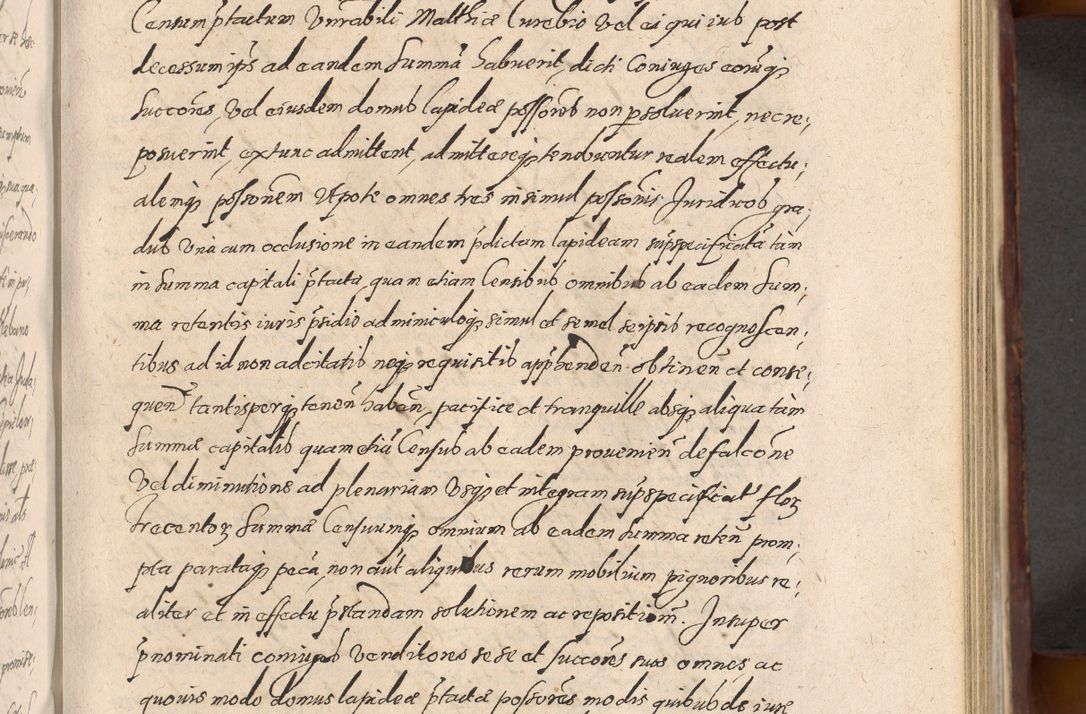 Censum ptactum Vnrabili Matthiæ Curebio Vel ei qui iub post
decessum ips ad eandem Summã habuerit, dicti Coniuges eorũq;
Succores, Vel eiusdem domus lapideæ possores non psoluerint, nec re,
posuerint, extunc admittent, admittereq; tenebuntur realem effectu,
alemq; possonem Utpote omnes tres insimul possonis Juridicos gra,
dus Vna cum occlusione in eandem pdictam lapideam supspecificatã tàm
in Summa capitali ptacta, quam etiam Censibus omnibus ab eadem Sum,
ma retentis iuris psidio adminiculoq; simul et semel se ipsis recognoscen,
tibus ad id non adcitatis neq; requisitis apphenden obtinen et conse,
quen tantisperq; tenen haben, pacifice et tranquille absq; aliqua tàm
Summæ capitalis quam etiã Census ab eadem prouenien defalcone
Vel diminutione ad plenariam Vsq; et integram supspecificat flor
trecentor Summæ Censuumq; omnium ab eadem Summa reten prom,
pta parataq; peca, non aut aliquibus rerum mobilium pignoribus re,
aliter et in effectu pstandam solutionem ac repositionem. Insuper
pnominati coniuges Venditores se se et Succores suos omnes ac
quouis modo domus lapideæ ptactæ possores modis quibus de iure